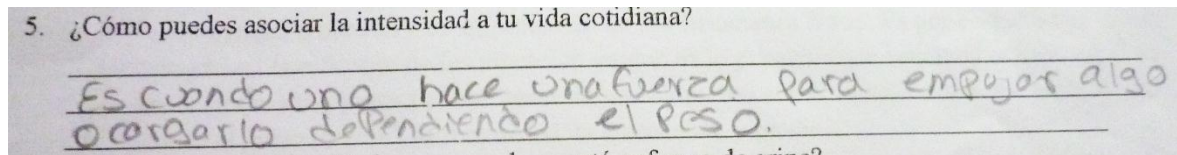 5. ¿Cómo puedes asociar la intensidad a tu vida cotidiana?
Es cuando uno hace una fuerza para empujar algo
o cargarlo dependiendo el peso.